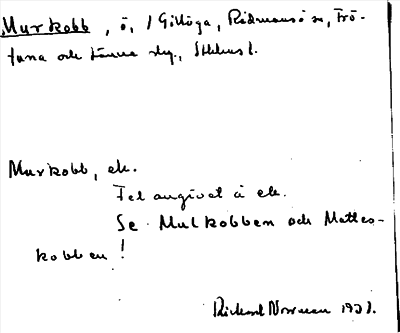 Murkobb, ö, i Gillöga, Rådmansö sn, Frö-
tuna och Länna skg., Sthlms l.
Murkobb, ek.
Fel angivet å ek.
Se Mulkobben och Mattes-
kobben!
Rickard Norman 1923.